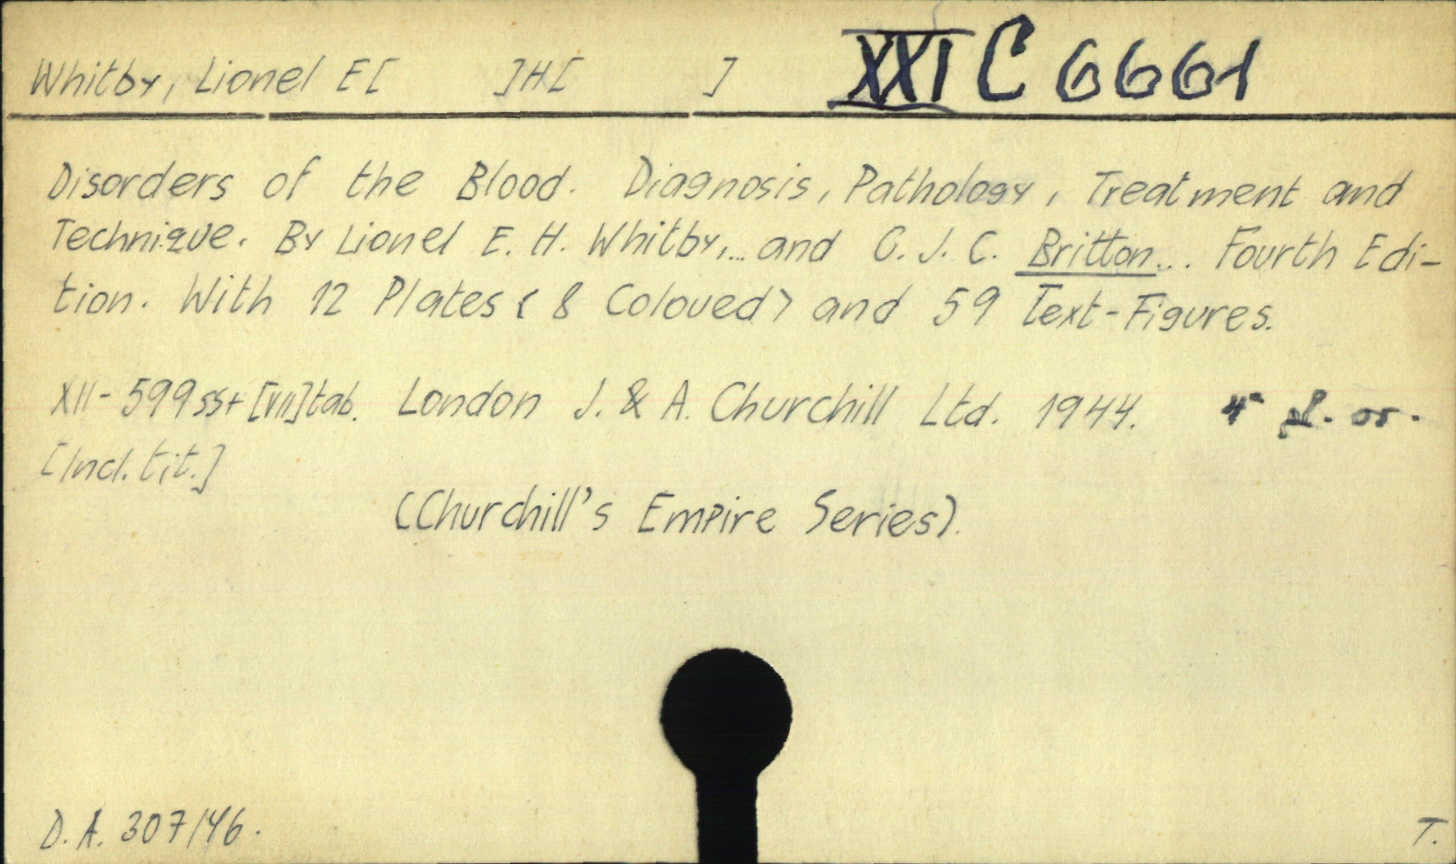 Whitby, Lionel E[ ]H[ ] XXI C 6661
Disorders of the Blood. Diagnosis, Pathology, Treatment and
Technique. By Lionel E. H. Whitby,... and C. J. C. Britton... Fourth Edi-
tion. With 12 Plates < 8 Coloued> and 59 Text-Figures.
XII-599 ss+[VII]tab. London J. & A. Churchill Ltd. 1944. 4° pł. or.
[Incl. tit.]
(Churchill's Empire Series).
D. A. 307/46.
T.